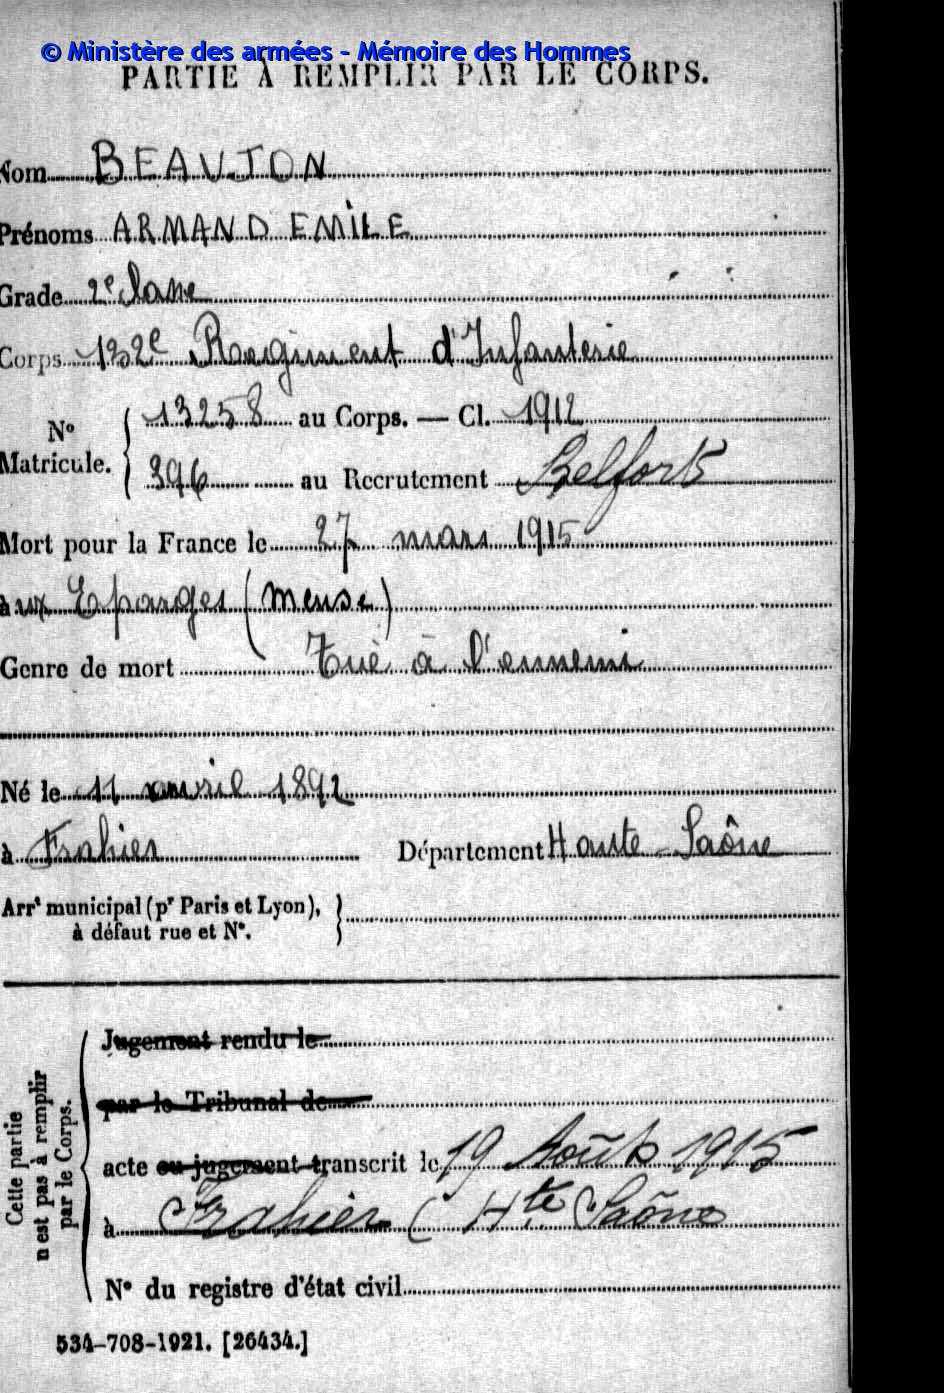 © Ministère des armées - Mémoire des Hommes
PARTIE À REMPLIR PAR LE CORPS.
Nom BEAUJON
Prénoms ARMAND EMILE
Grade 2e classe
Corps 132e Régiment d'Infanterie
N° Matricule. 13258 au Corps. — Cl. 1912
396 au Recrutement Belfort
Mort pour la France le 27 mars 1915
aux Eparges (Meuse)
Genre de mort Tué à l'ennemi
Né le 11 avril 1892
à Frahier Département Haute-Saône
Arrt municipal (pr Paris et Lyon),
à défaut rue et N°.
Cette partie
n'est pas à remplir
par le Corps.
Jugement rendu le
par le Tribunal de
acte ou jugement transcrit le 19 Août 1915
à Frahier (Hte Saône
N° du registre d'état civil
534-708-1921. [26434.]